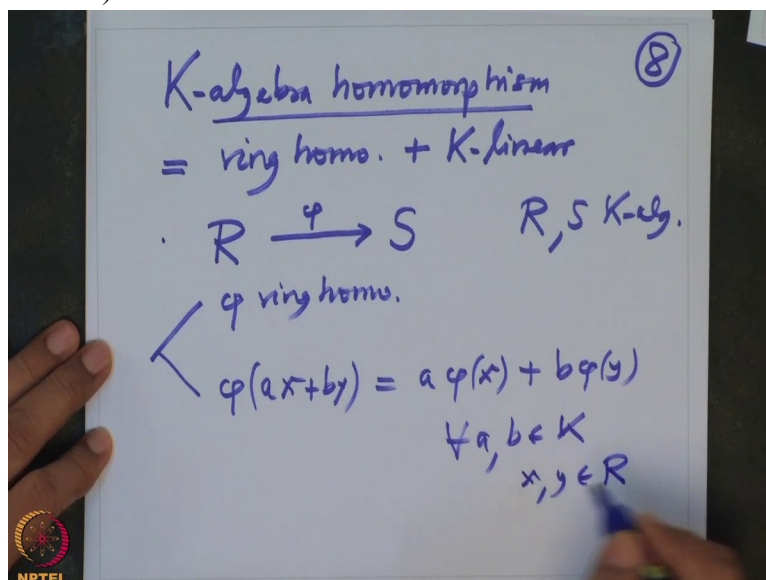 ⑧
K-algebra homomorphism
= ring homo. + K-linear
R —φ→ S    R, S K-alg.
φ ring homo.
φ(ax+by) = a φ(x) + b φ(y)
∀ a, b ∈ K
x, y ∈ R
NPTEL